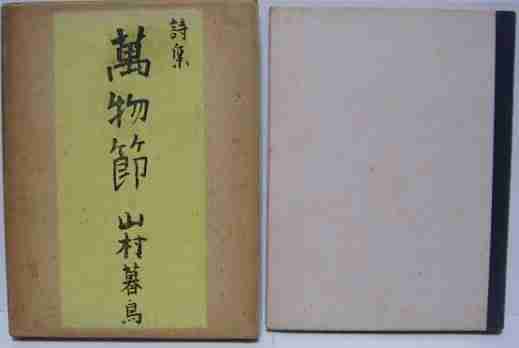 詩集
萬物節
山村暮鳥